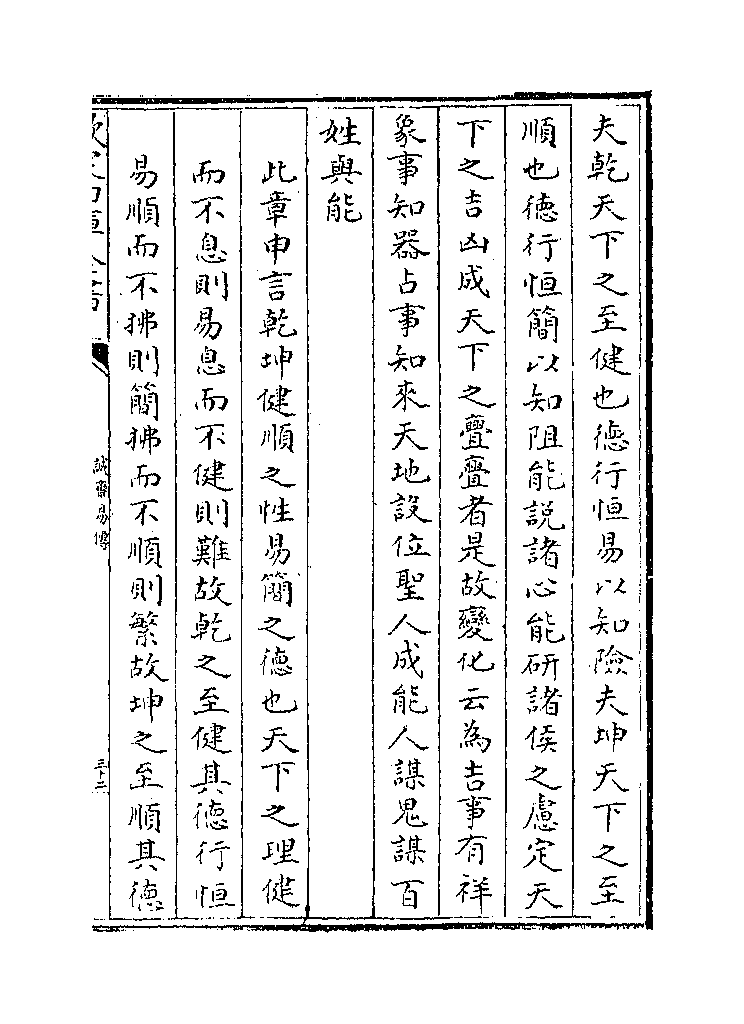 夫乾天下之至健也德行恒易以知險夫坤天下之至
順也德行恒簡以知阻能説諸心能研諸侯之慮定天
下之吉凶成天下之亹亹者是故變化云為吉事有祥
象事知器占事知來天地設位聖人成能人謀鬼謀百
姓與能
此章申言乾坤健順之性易簡之德也天下之理健
而不息則易息而不健則難故乾之至健其德行恒
易順而不拂則簡拂而不順則繁故坤之至順其德
誠齋易傳
三十二